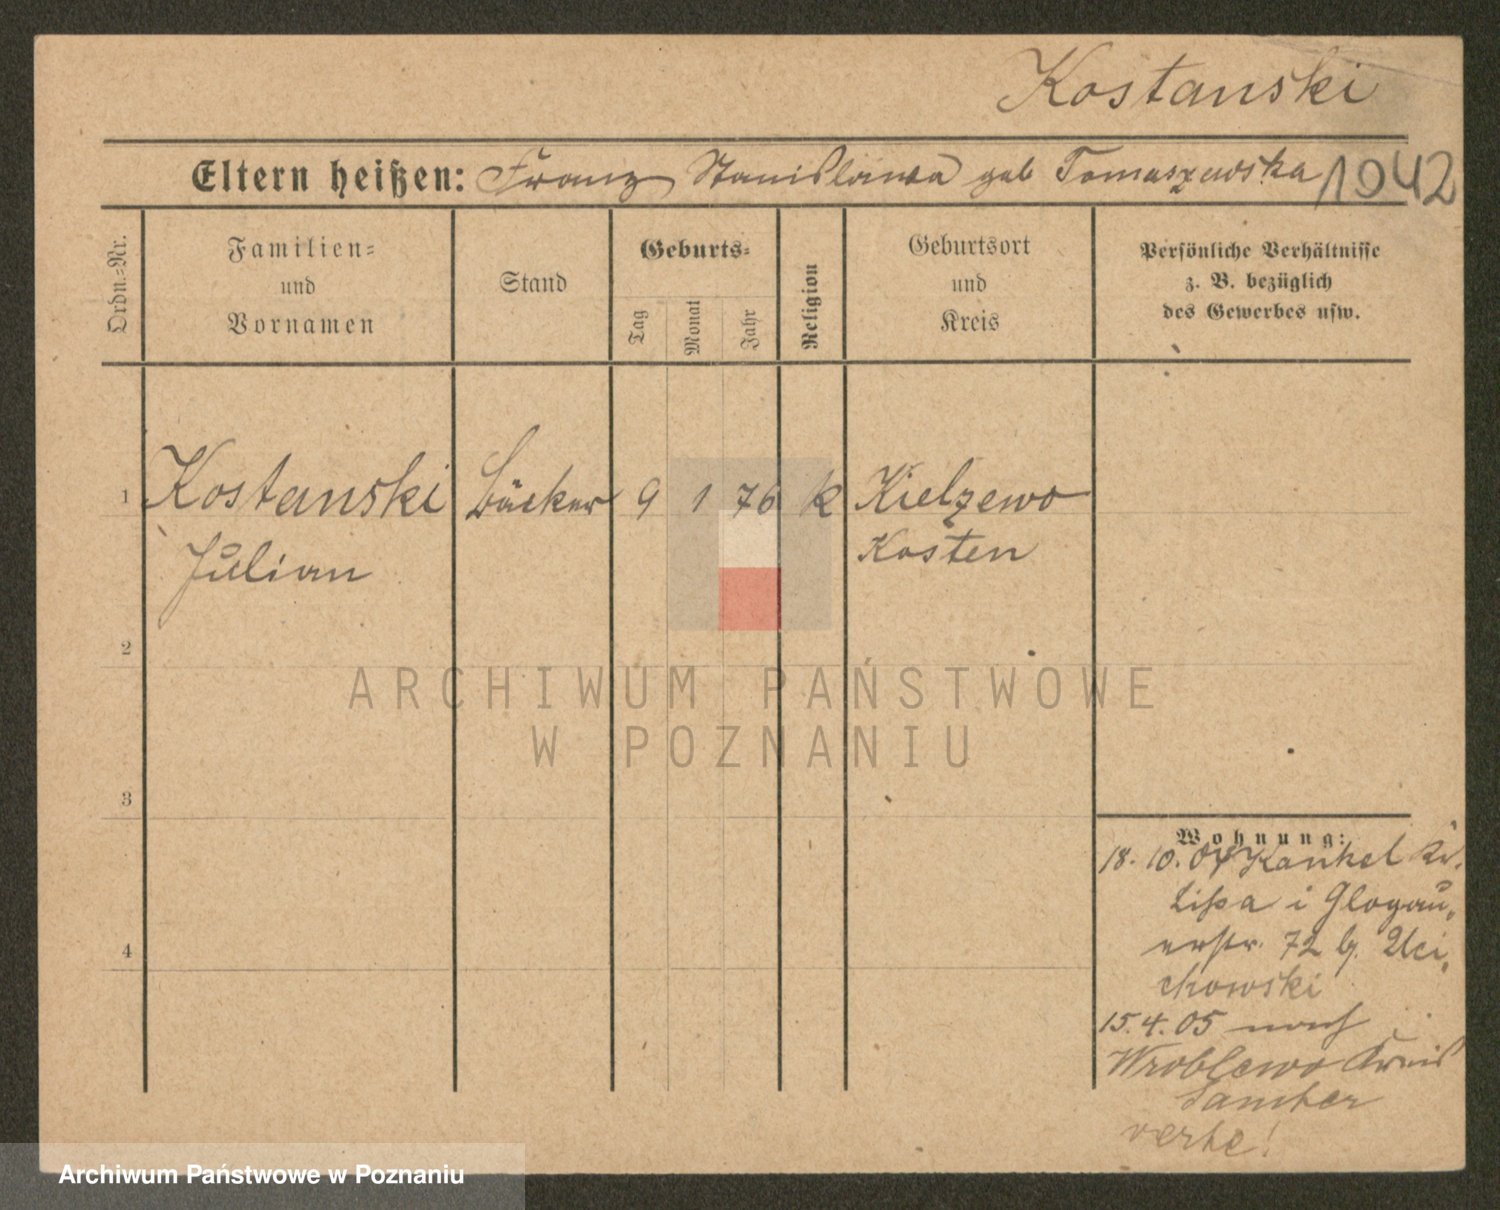 Kostanski
Eltern heißen: Franz, Stanislawa geb Tomaszewska 1042
Ordn.=Nr.
Familien=
und
Vornamen
Stand
Geburts=
Tag
Monat
Jahr
Religion
Geburtsort
und
Kreis
Persönliche Verhältnisse
z. B. bezüglich
des Gewerbes usw.
1 Kostanski Bäcker 9 1 76 k Kielzewo
Julian Kosten
2
ARCHIWUM PAŃSTWOWE
W POZNANIU
3
Wohnung:
18. 10. 04 Kankel Kr.
Lissa i Glogau„
erstr. 72 b.
chowski
4
15.4.05 nach
Wroblewo Kreis
Samter
Archiwum Państwowe w Poznaniu